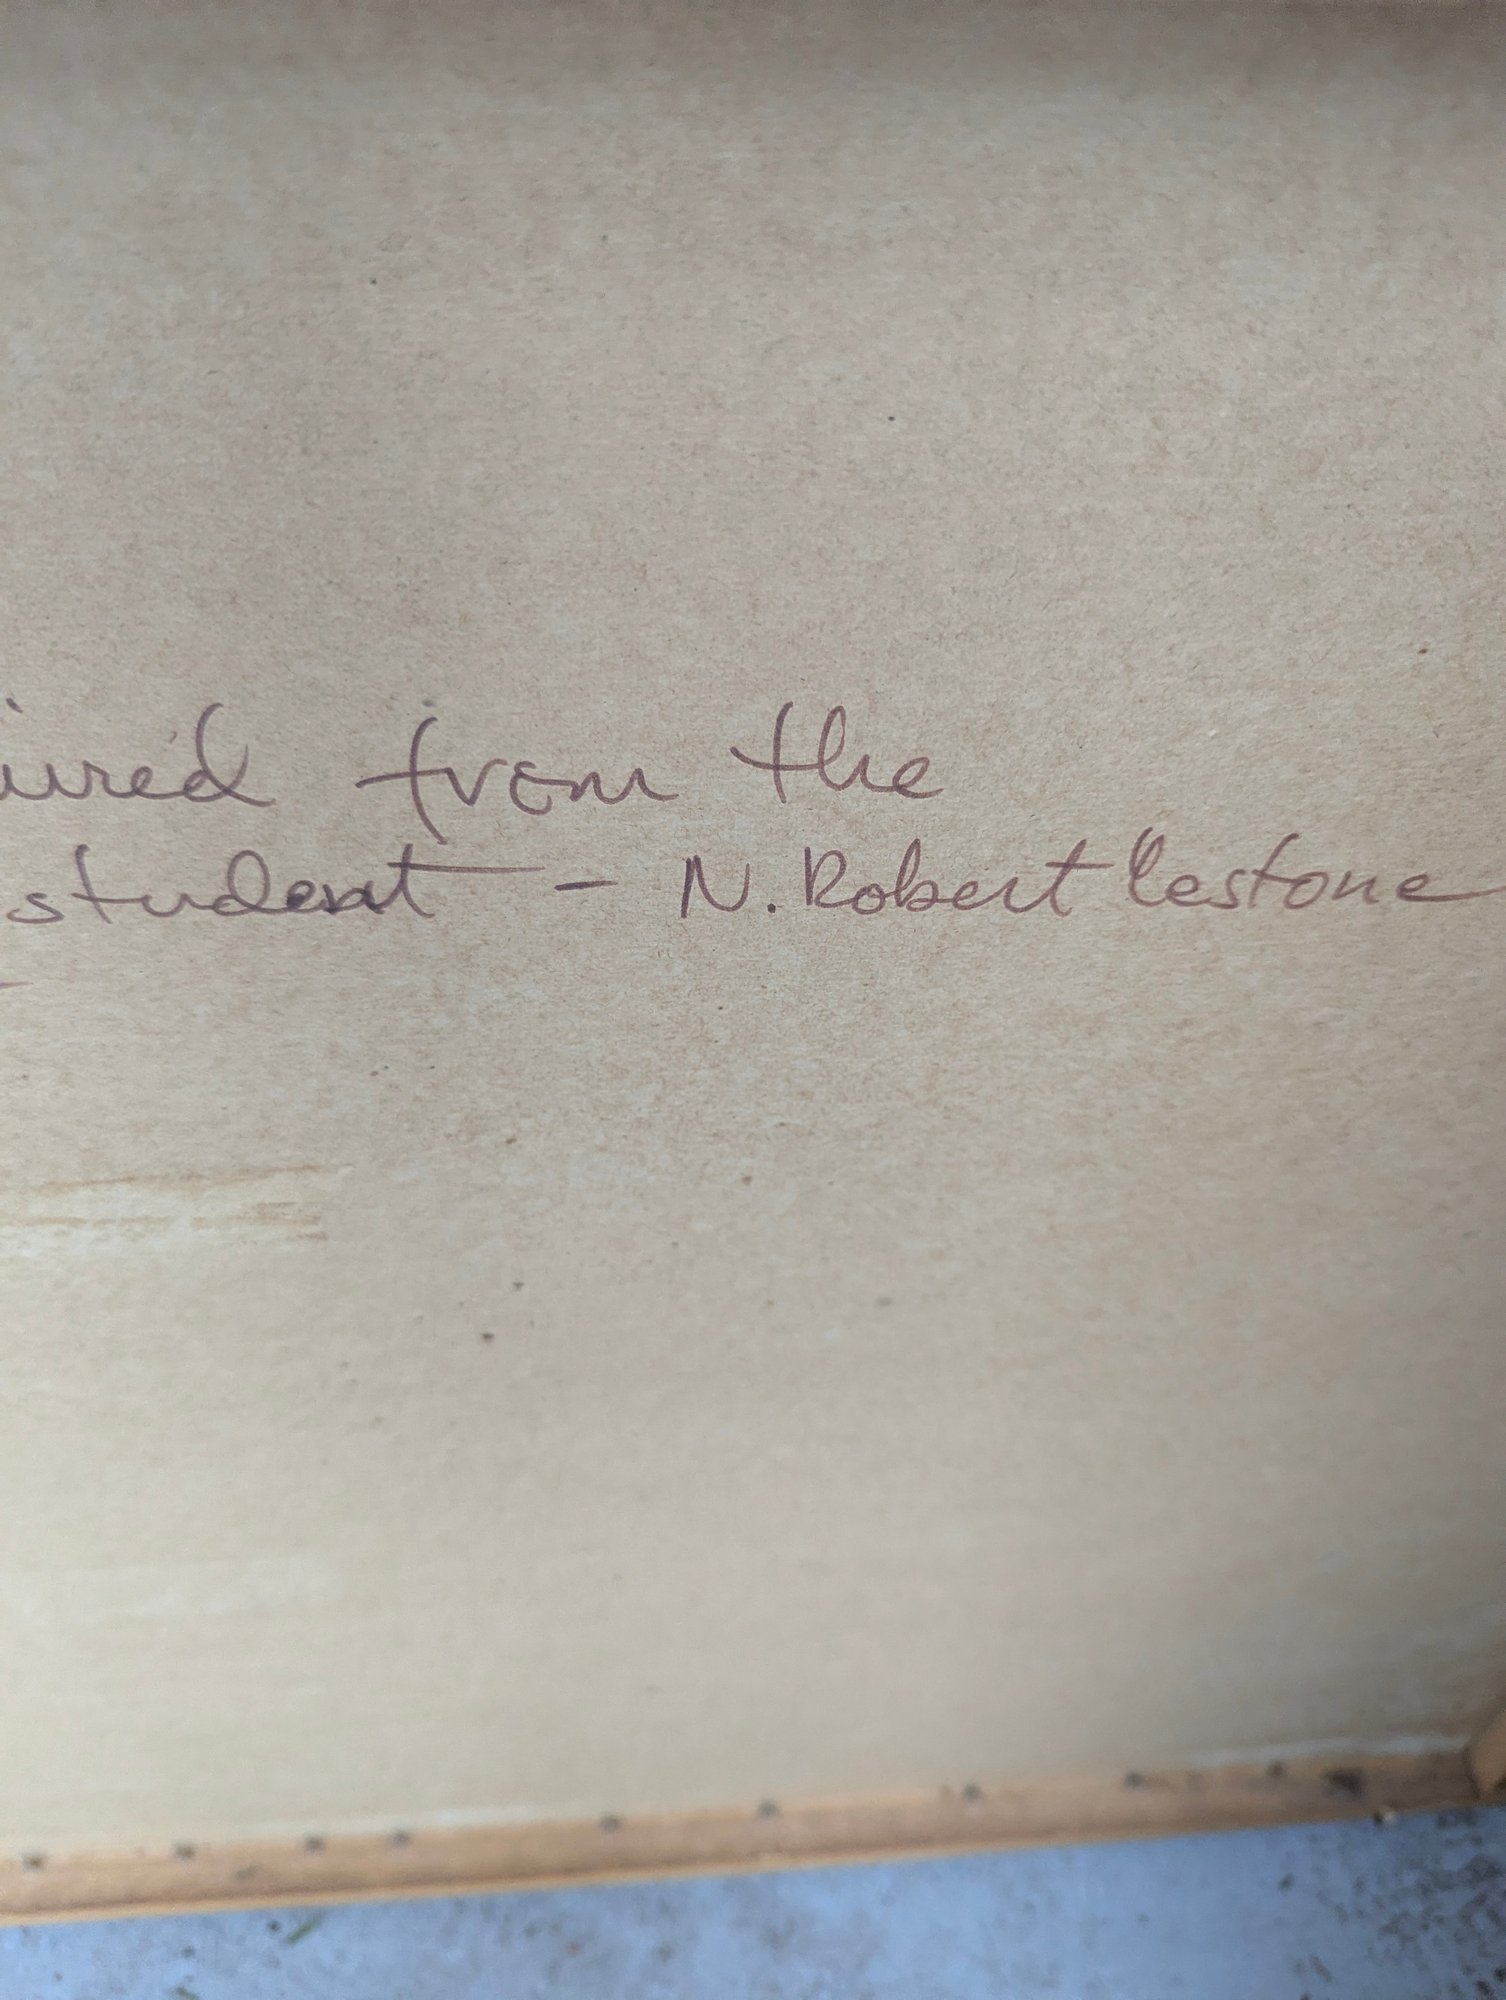 ired from the
student – N. Robert Lestone